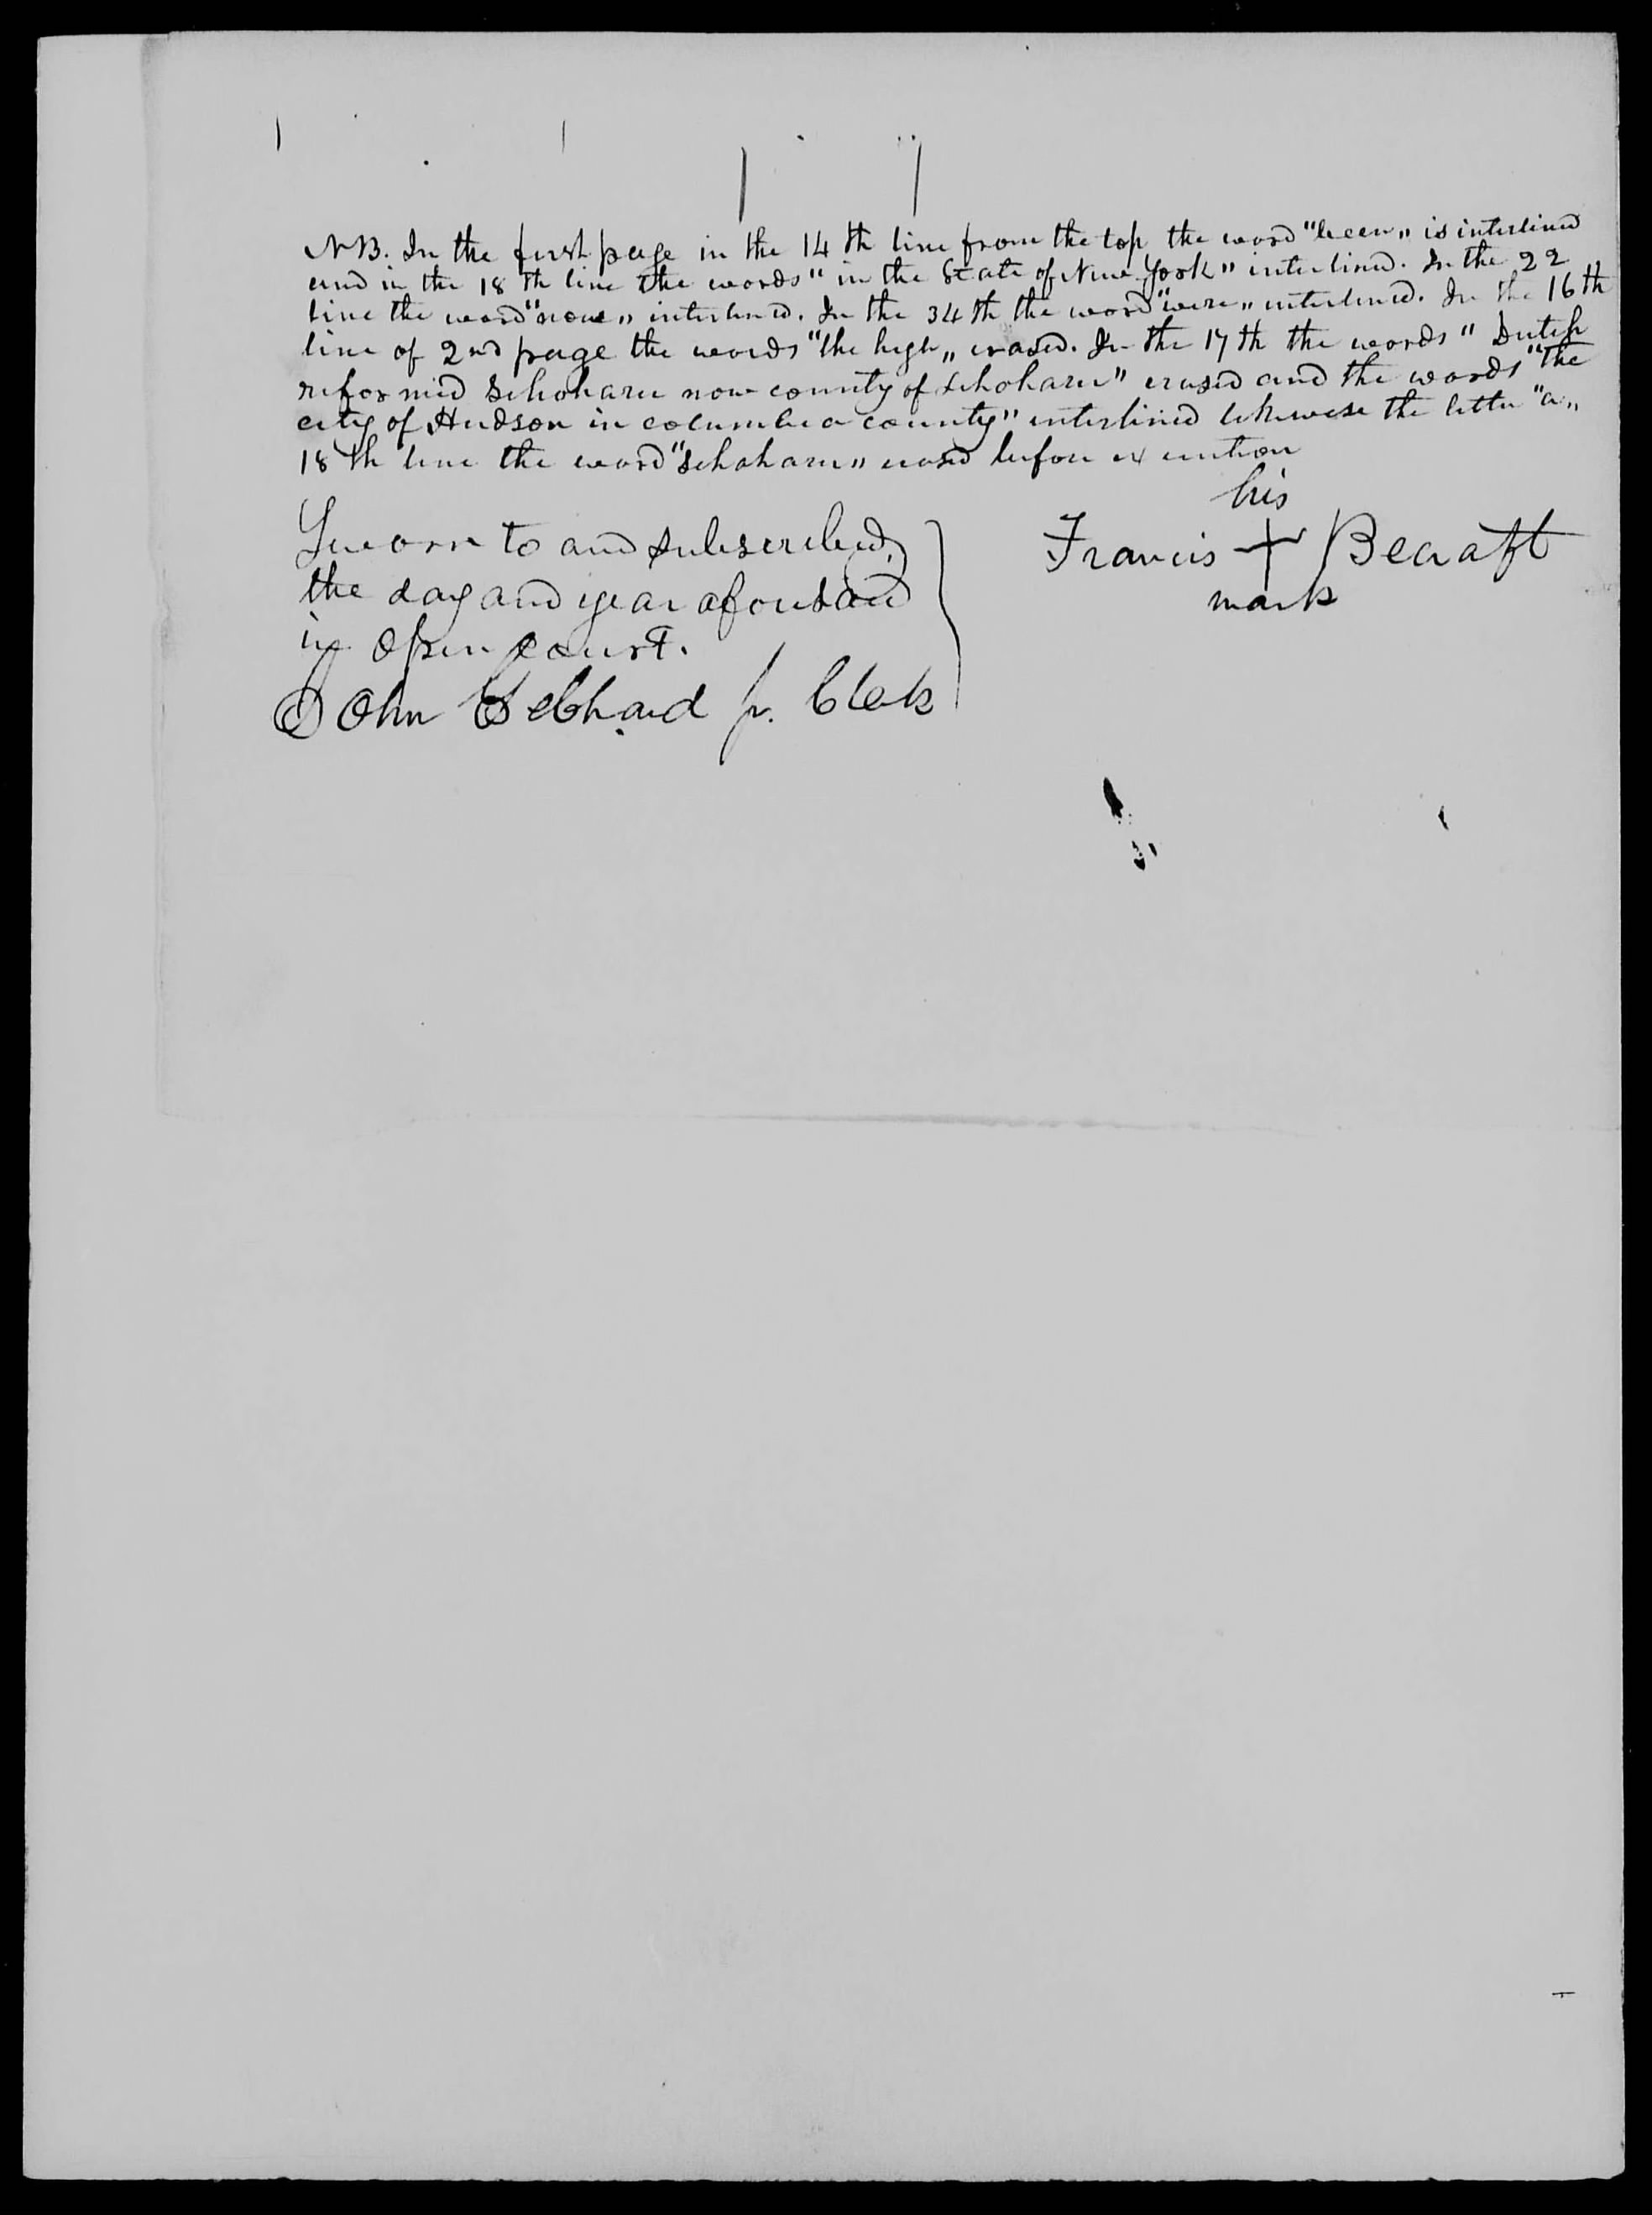 NB. In the first page in the 14th line from the top the word "been" is interlined
and in the 18th line the words "in the State of New York" interlined. In the 22
line the word "now" interlined. In the 34th the word "were" interlined. In the 16th
line of 2nd page the words "the high" erased. In the 17th the words "Dutch
reformed Schoharie now county of Schoharie" erased and the words "the
city of Hudson in columbia county" interlined likewise the letter "a"
18th line the word "Schoharie" erased before execution
his
Francis + Becraft
mark
Sworn to and subscribed
the day and year aforesaid
in open court.
John Gebhard jr. Clerk